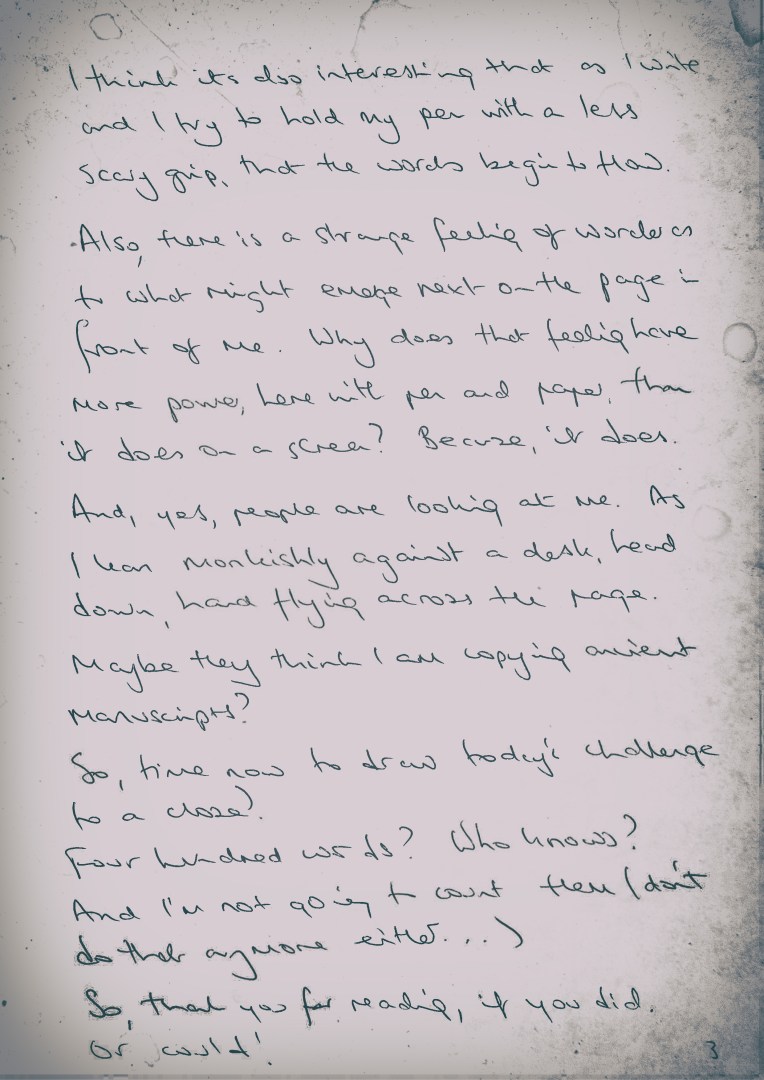 I think its also interesting that as I write
and I try to hold my pen with a less
scary grip, that the words begin to flow.
Also, there is a strange feeling of wonder as
to what might emerge next on the page in
front of me. Why does that feeling have
more power, here with pen and paper, than
it does on a screen? Because, it does.
And, yes, people are looking at me. As
I lean monkishly against a desk, head
down, hand flying across the page.
Maybe they think I am copying ancient
manuscripts?
So, time now to draw today's challenge
to a close?
Four hundred words? Who knows?
And I'm not going to count them (don't
do that anymore either...)
So, thank you for reading, if you did.
Or could!
3